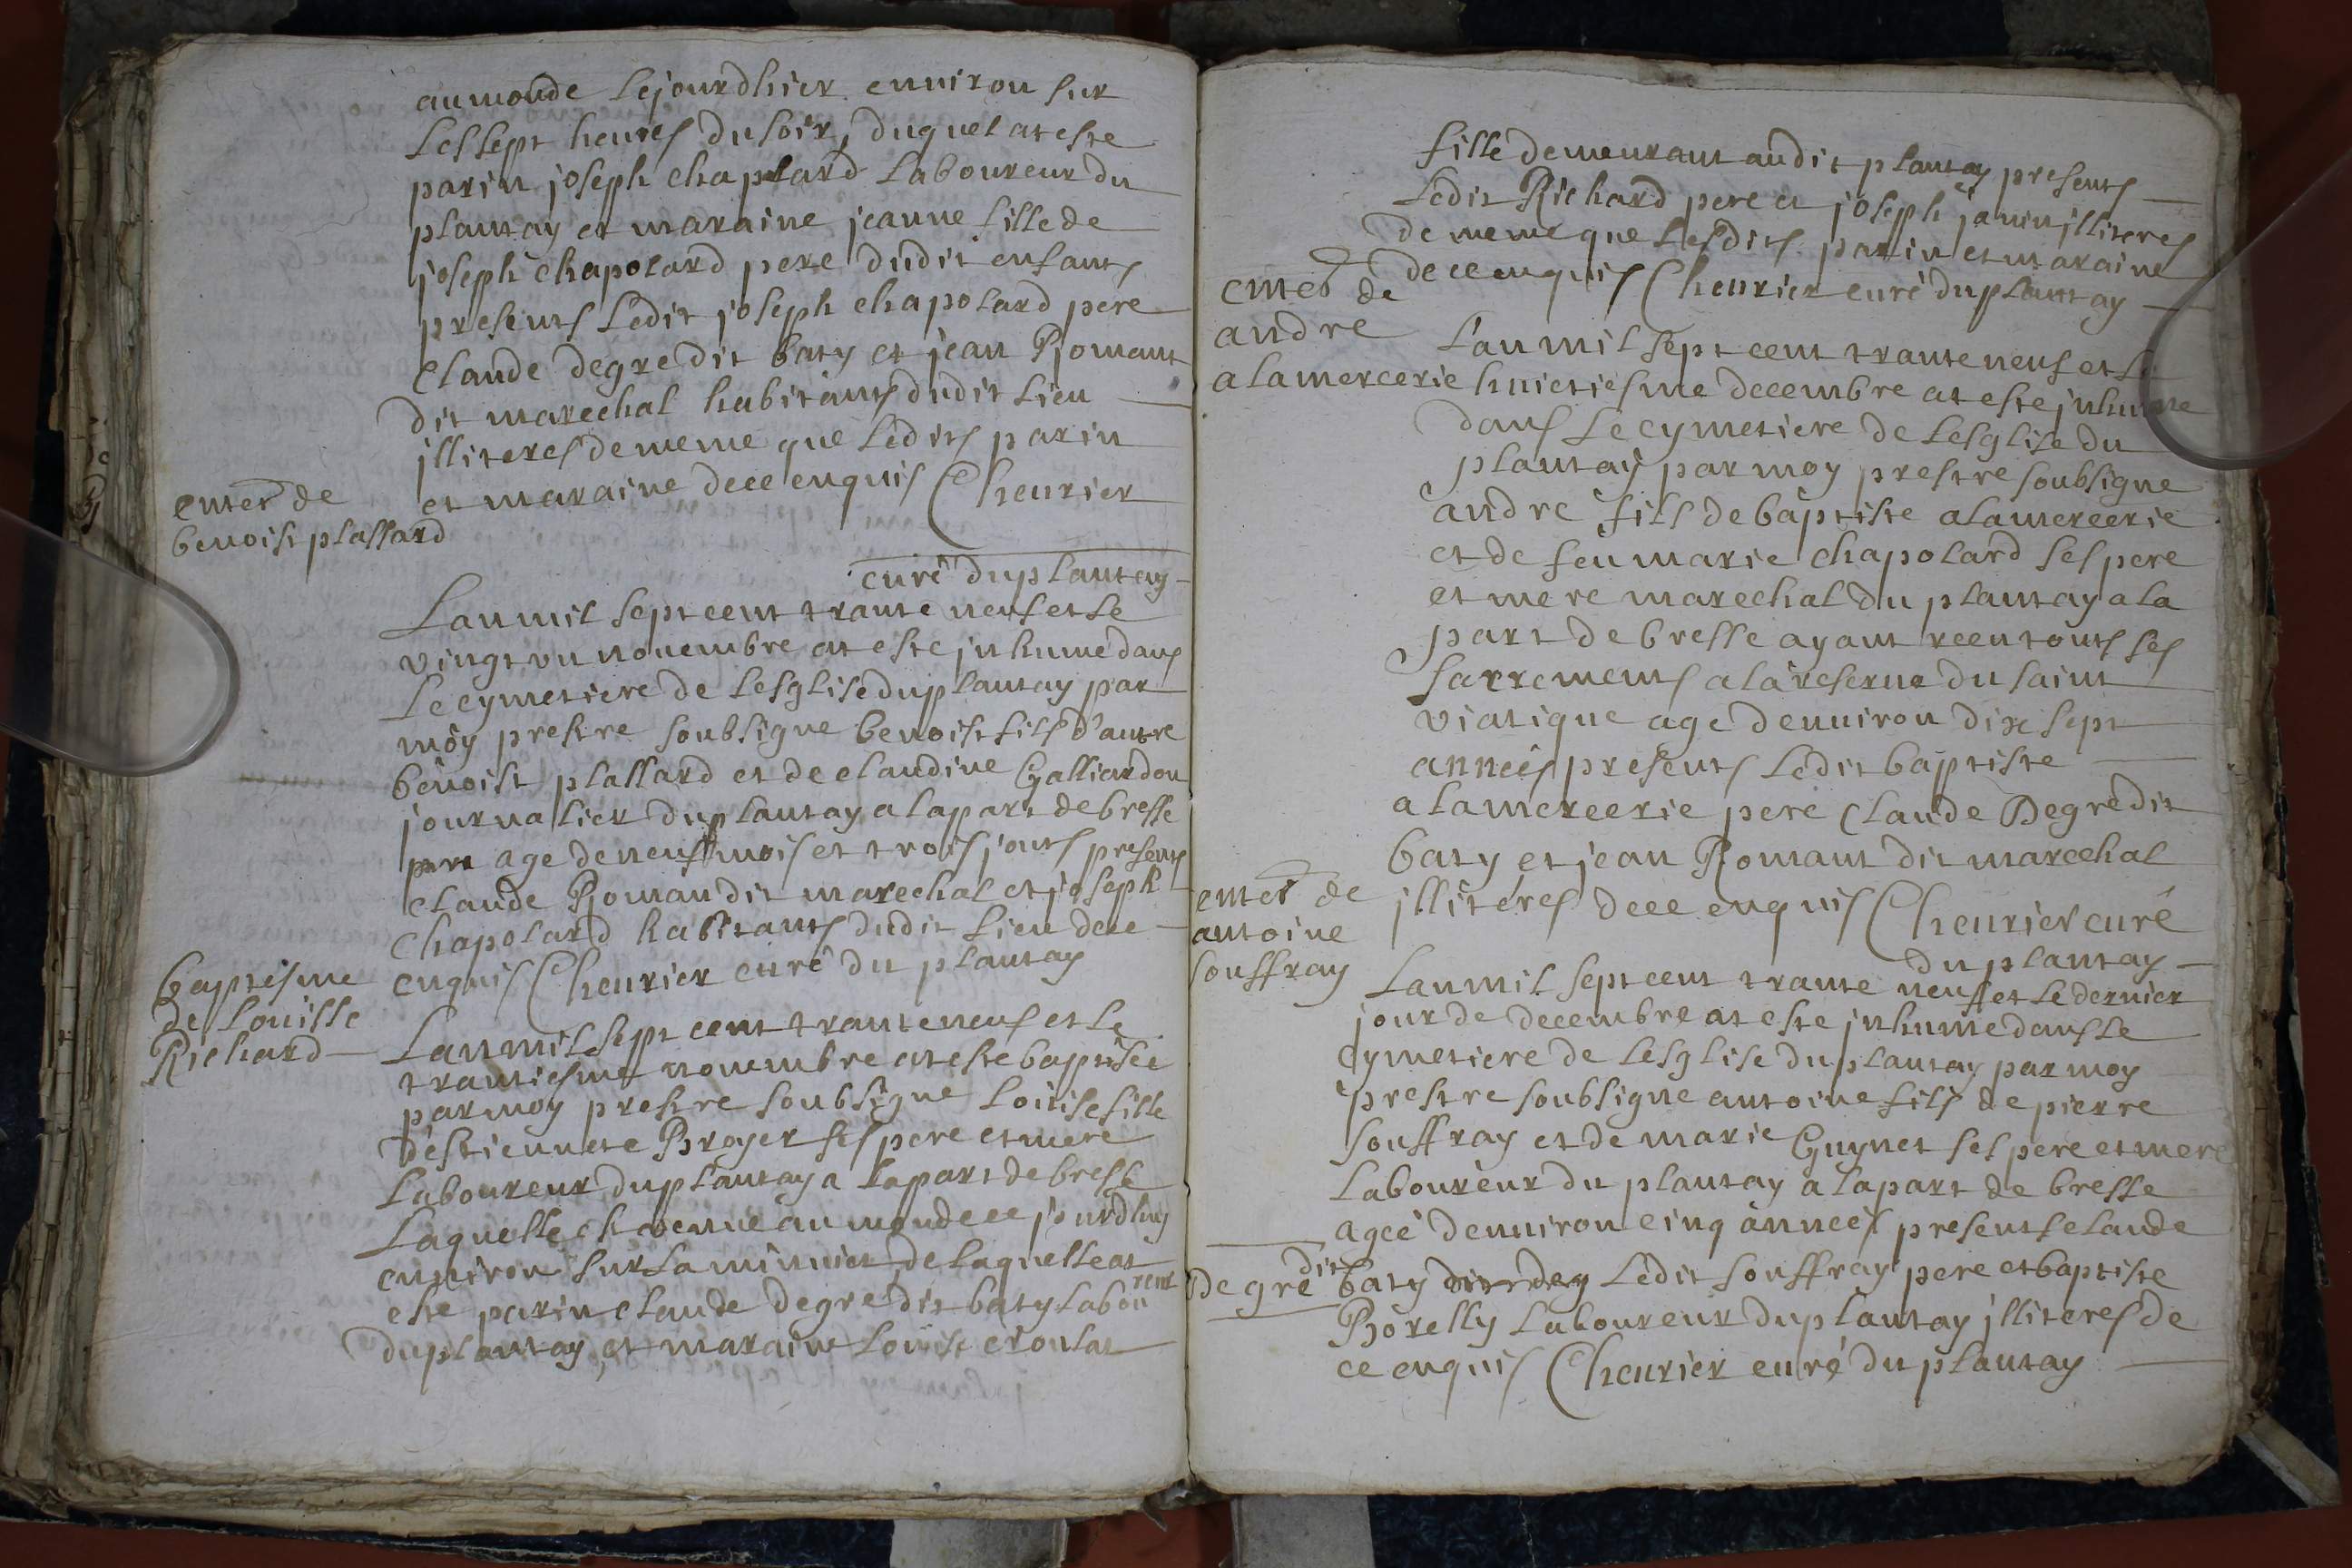 au monde lejourdhier environ sur
les sept heures du soir, duquel at este
parin joseph chapolard laboureur du
plantay et maraine jeanne fille de
joseph chapolard pere dudit enfants
presents ledit joseph chapolard pere
Claude degre dit baty et jean Romant
dit marechal habitants dudit lieu
jlliteres de meme que ledits parin
et maraine dece enquis Cheurier
curé du plantay
enter de
benoist plassard
Lanmil sept cent trante neuf et le
vingt vn nouembre at este jnhumé dans
le cymetiere de lesglise du plantay par
moy prestre soubsigne benoist fils d'autre
benoist plassard et de claudine Galliardon
journalier du plantay a la part de bresse
age de neuf mois et trois jours presents
claude Roman dit marechal et joseph
Chapolard habitants dudit lieu dece
enquis Cheurier curé du plantay
baptesme
de louisse
Richard
Lanmil sept cent trante neuf et le
trantiesme nouembre at este baptisée
par moy prestre soubsigne loüise fille
destiennete Broyer ses pere et mere
laboureur du plantay a la part de bresse
Laquelle est venue au monde ce jourdhuy
environ sur la minuict de laquelle at
este parin claude degre dit baty laboureur
du plantay, et maraine loüise croulat
fille demeurant audit plantay presents
ledit Richard pere et joseph janin jlliteres
de meme que lesdits parin et maraine
de ce enquis Cheurier curé du plantay
enter de
andre
alamercerie
L'anmil sept cent trante neuf et le
huictiesme decembre at este jnhume
dans le cymetiere de lesglise du
plantay par moy prestre soubsigne
andre fils de baptiste alamercerie
et de feu marie chapolard ses pere
et mere marechal du plantay a la
part de bresse ayant receu touts ses
sacrements a la reserue du saint
viatique age denuiron dix sept
années presents ledit baptiste
alamercerie pere Claude Degre dit
baty et jean Romant dit marechal
jlliteres dece enquis Cheurier curé
du plantay
enter de
antoine
souffray
Lanmil sept cent trante neuf et le dernier
jour de decembre at este jnhume dans le
cymetiere de lesglise du plantay par moy
prestre soubsigne antoine fils de pierre
souffray et de marie Guynet ses pere et mere
laboureur du plantay a la part de bresse
agée denuiron cinq années presents claude
degre dit baty ledit souffray pere et baptiste
Borelly laboureur du plantay jlliteres de
ce enquis Cheurier curé du plantay